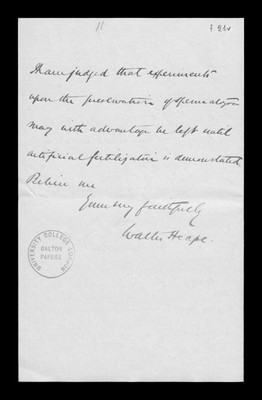 11
f 21v
I have judged that experiments
upon the preservation of spermatozoa
may with advantage be left until
artificial fertilization is demonstrated
Believe me
Yours very faithfully
Walter Heape.
UNIVERSITY COLLEGE LONDON
GALTON
PAPERS